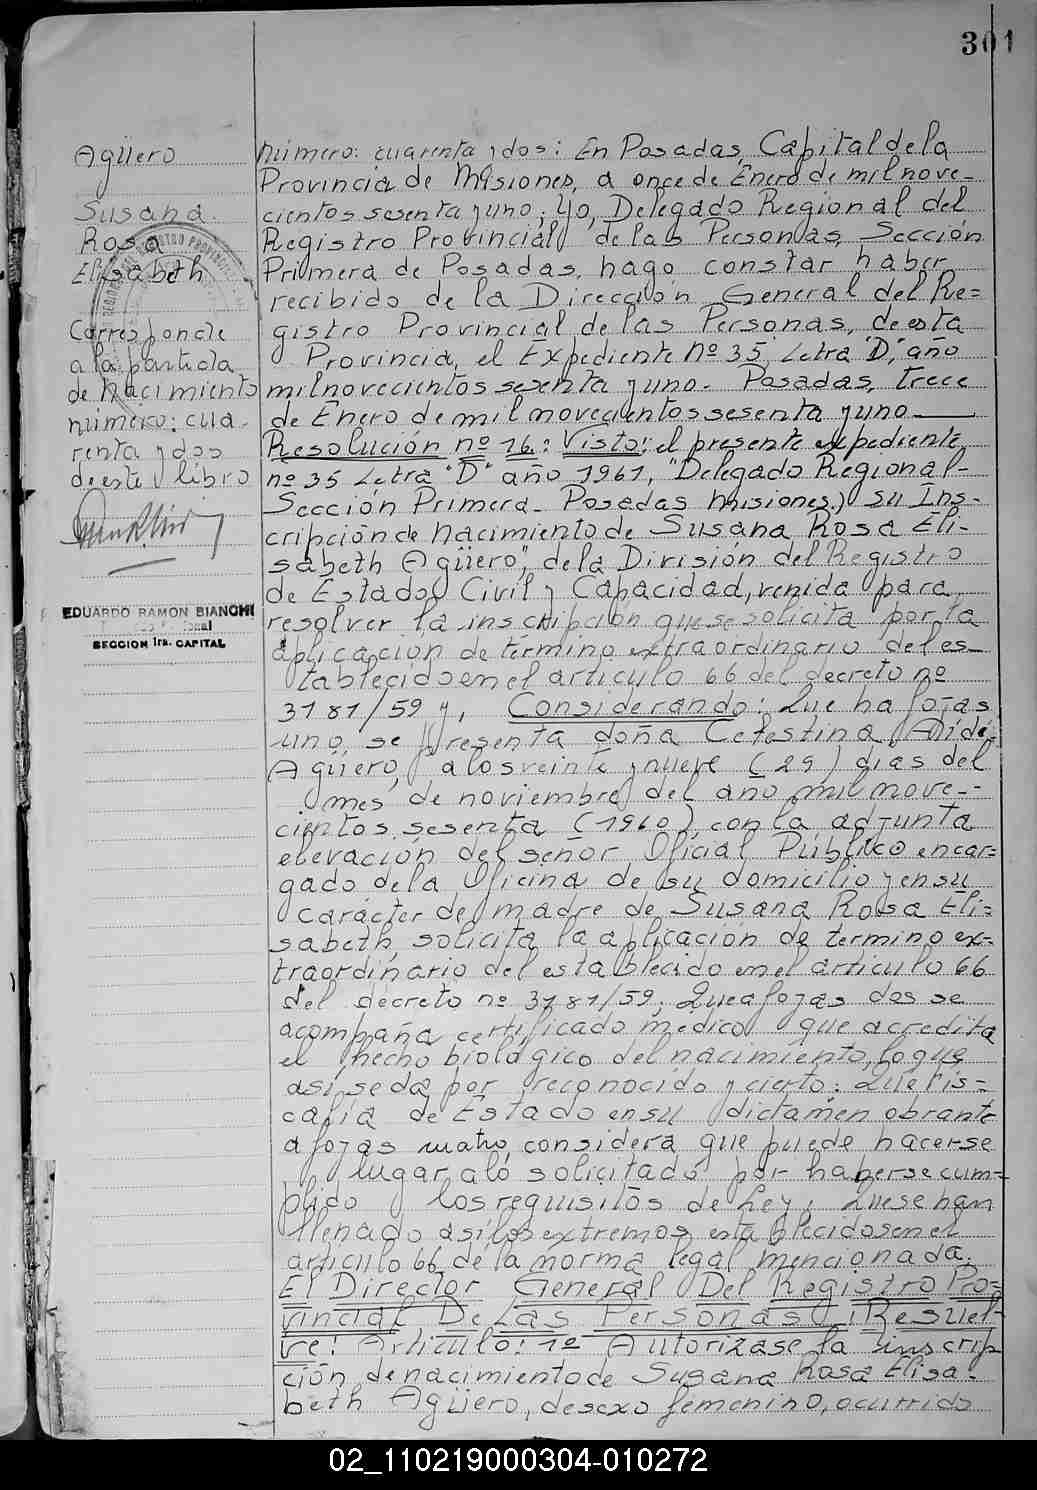 301
Agüero
Susana
Rosa
Elisabeth
Corresponde
a la partida
de nacimiento
número: cua-
renta y dos
de este libro
EDUARDO RAMON BIANCHI
SECCION 1ra. CAPITAL
número: cuarenta y dos: En Posadas, Capital de la
Provincia de Misiones, a once de Enero de mil nove-
cientos sesenta y uno: Yo, Delegado Regional del
Registro Provincial de las Personas, Sección
Primera de Posadas, hago constar haber
recibido de la Dirección General del Re=
gistro Provincial de las Personas, de esta
Provincia, el Expediente nº 35, Letra "D", año
mil novecientos sesenta y uno. Posadas, trece
de Enero de mil novecientos sesenta y uno
Resolución nº 16: Visto: el presente expediente
nº 35 Letra "D" año 1961, "Delegado Regional-
Sección Primera- Posadas Misiones) su Ins-
cripción de nacimiento de Susana Rosa Eli-
sabeth Agüero", de la División del Registro
de Estado Civil y Capacidad, venida para
resolver la inscripción que se solicita por la
aplicación de término extraordinario del es-
tablecido en el artículo 66 del decreto nº
3181/59 y, Considerando: Que ha fojas
uno, se presenta doña Celestina Aidé
Agüero, a los veinte y nueve (29) días del
mes de noviembre del año mil nove--
cientos sesenta (1960), con la adjunta
elevación del señor Oficial Público encar=
gado de la Oficina de su domicilio y en su
carácter de madre de Susana Rosa Eli=
sabeth, solicita la aplicación de termino ex-
traordinario del establecido en el artículo 66
del decreto nº 3181/59; Que a fojas dos se
acompaña certificado médico que acredita
el hecho biológico del nacimiento, lo que
así se da por reconocido y cierto: Que Fis-
calía de Estado en su dictamen obrante
a fojas cuatro, considera que puede hacerse
lugar a lo solicitado por haberse cum-
plido los requisitos de Ley; Que se han
llenado así los extremos establecidos en el
artículo 66 de la norma legal mencionada.
El Director General Del Registro Pro-
vincial De Las Personas, Resuel-
ve: Artículo: 1º Autorizase la inscrip
ción de nacimiento de Susana Rosa Elisa-
beth Agüero, de sexo femenino, ocurrido
02_110219000304-010272